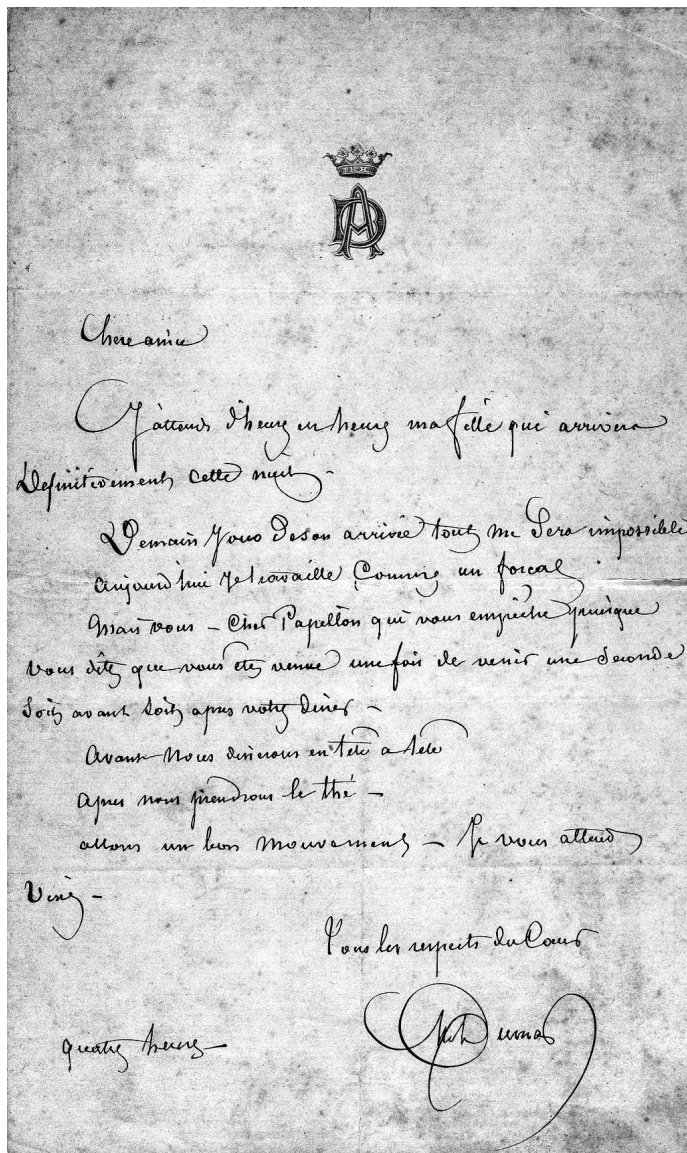 AD
Chere amie
J'attends d'heure en heure ma fille qui arrivera
Definitivement cette nuit –
Demain jour de son arrivée tout me sera impossible
aujourd'hui je travaille comme un forcat
Mais vous – Cher Papillon qui vous empêche puisque
vous dites que vous etes venue une fois de venir une seconde
soit avant soit apres votre diner –
Avant nous dinerons en tete a tete
Apres nous prendrons le thé –
allons un bon mouvement – Je vous attend
Venez –
Tous les respects du Coeur
Alex Dumas
quatre heures –